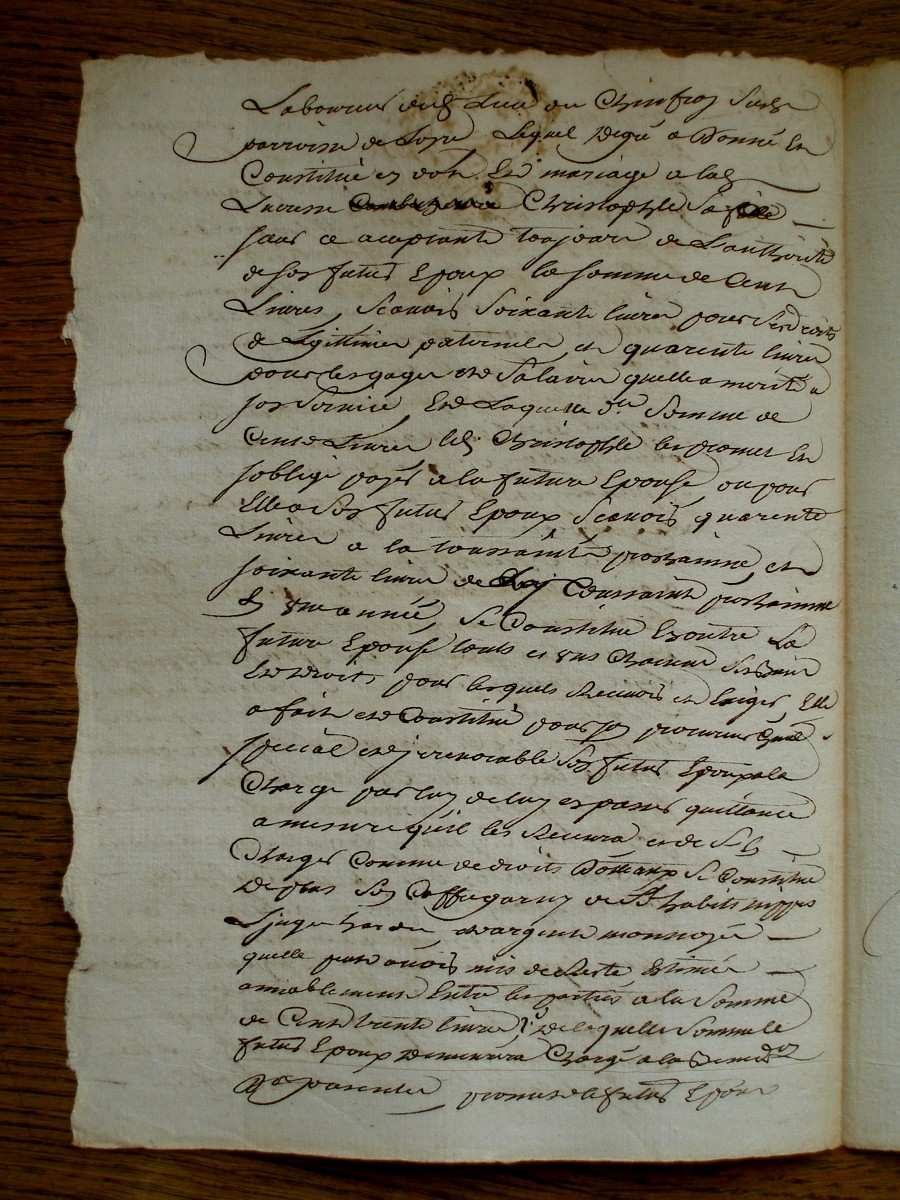 Laboureur dud lieu de Chirifroy susd
parroisse de Lozre Lequel de gré a Donné Et
Constitué en dot Et mariage a lad
Lucresse Christophle sa fille
sous ce aceptante toujours de L'authorité
de son futur Epoux la somme de Cent
Livres, scavoir soixante livres pour ses droits
de Legittime paternelle et quarente livres
pour les gages et salaires quelle a merité a
son service, Et Laquelle d.te somme de
Cent Livres led Christophle les promet Et
soblige payer a la future Epouse ou pour
Elle a son futur Epoux scavoir quarente
Livres a la toussaints prochaine, et
soixante livres de toussaint prochaine
En une année, se Constitue En outre La
future Epouse touts et uns chacuns ses biens
Et droits pour lesquels Recevoir et Exiger, Elle
a fait et Constitué pour son procureur gnal
special et irrevocable son futur Epoux a la
Charge par luy de luy en passer quittance
a mesure quil les Recevra et de ses
Charges Comme de droits Dottaux se Constitue
De plus son Coffre garny de habits nippes
Linge hardes et argent monnoyé
quelle peut avoir mis de Reste Estimés
amiablement Entre les parties a la somme
de Cent trente livres De laquelle somme le
futur Epoux Demeurera Chargé a la
parentes promet le futur Epoux